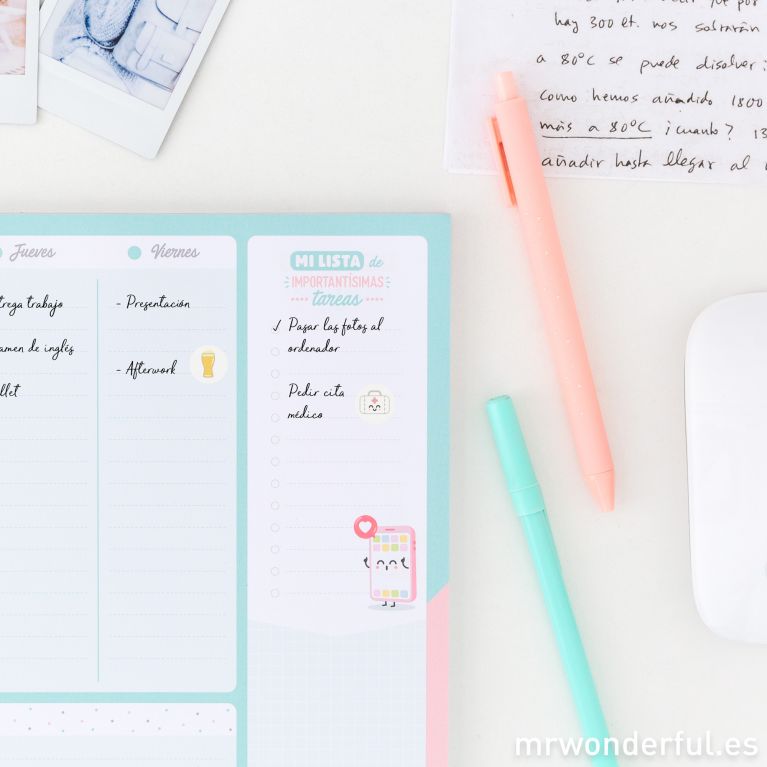 hay 300 et. nos sobrarán
a 80°C se puede disolver:
como hemos añadido 1800
más a 80°C ¿cuanto? 13
añadir hasta llegar al
Jueves
Viernes
trega trabajo
amen de inglés
llet
- Presentación
- Afterwork
MI LISTA de
IMPORTANTÍSIMAS
tareas
✓ Pasar las fotos al
ordenador
Pedir cita
médico
mrwonderful.es